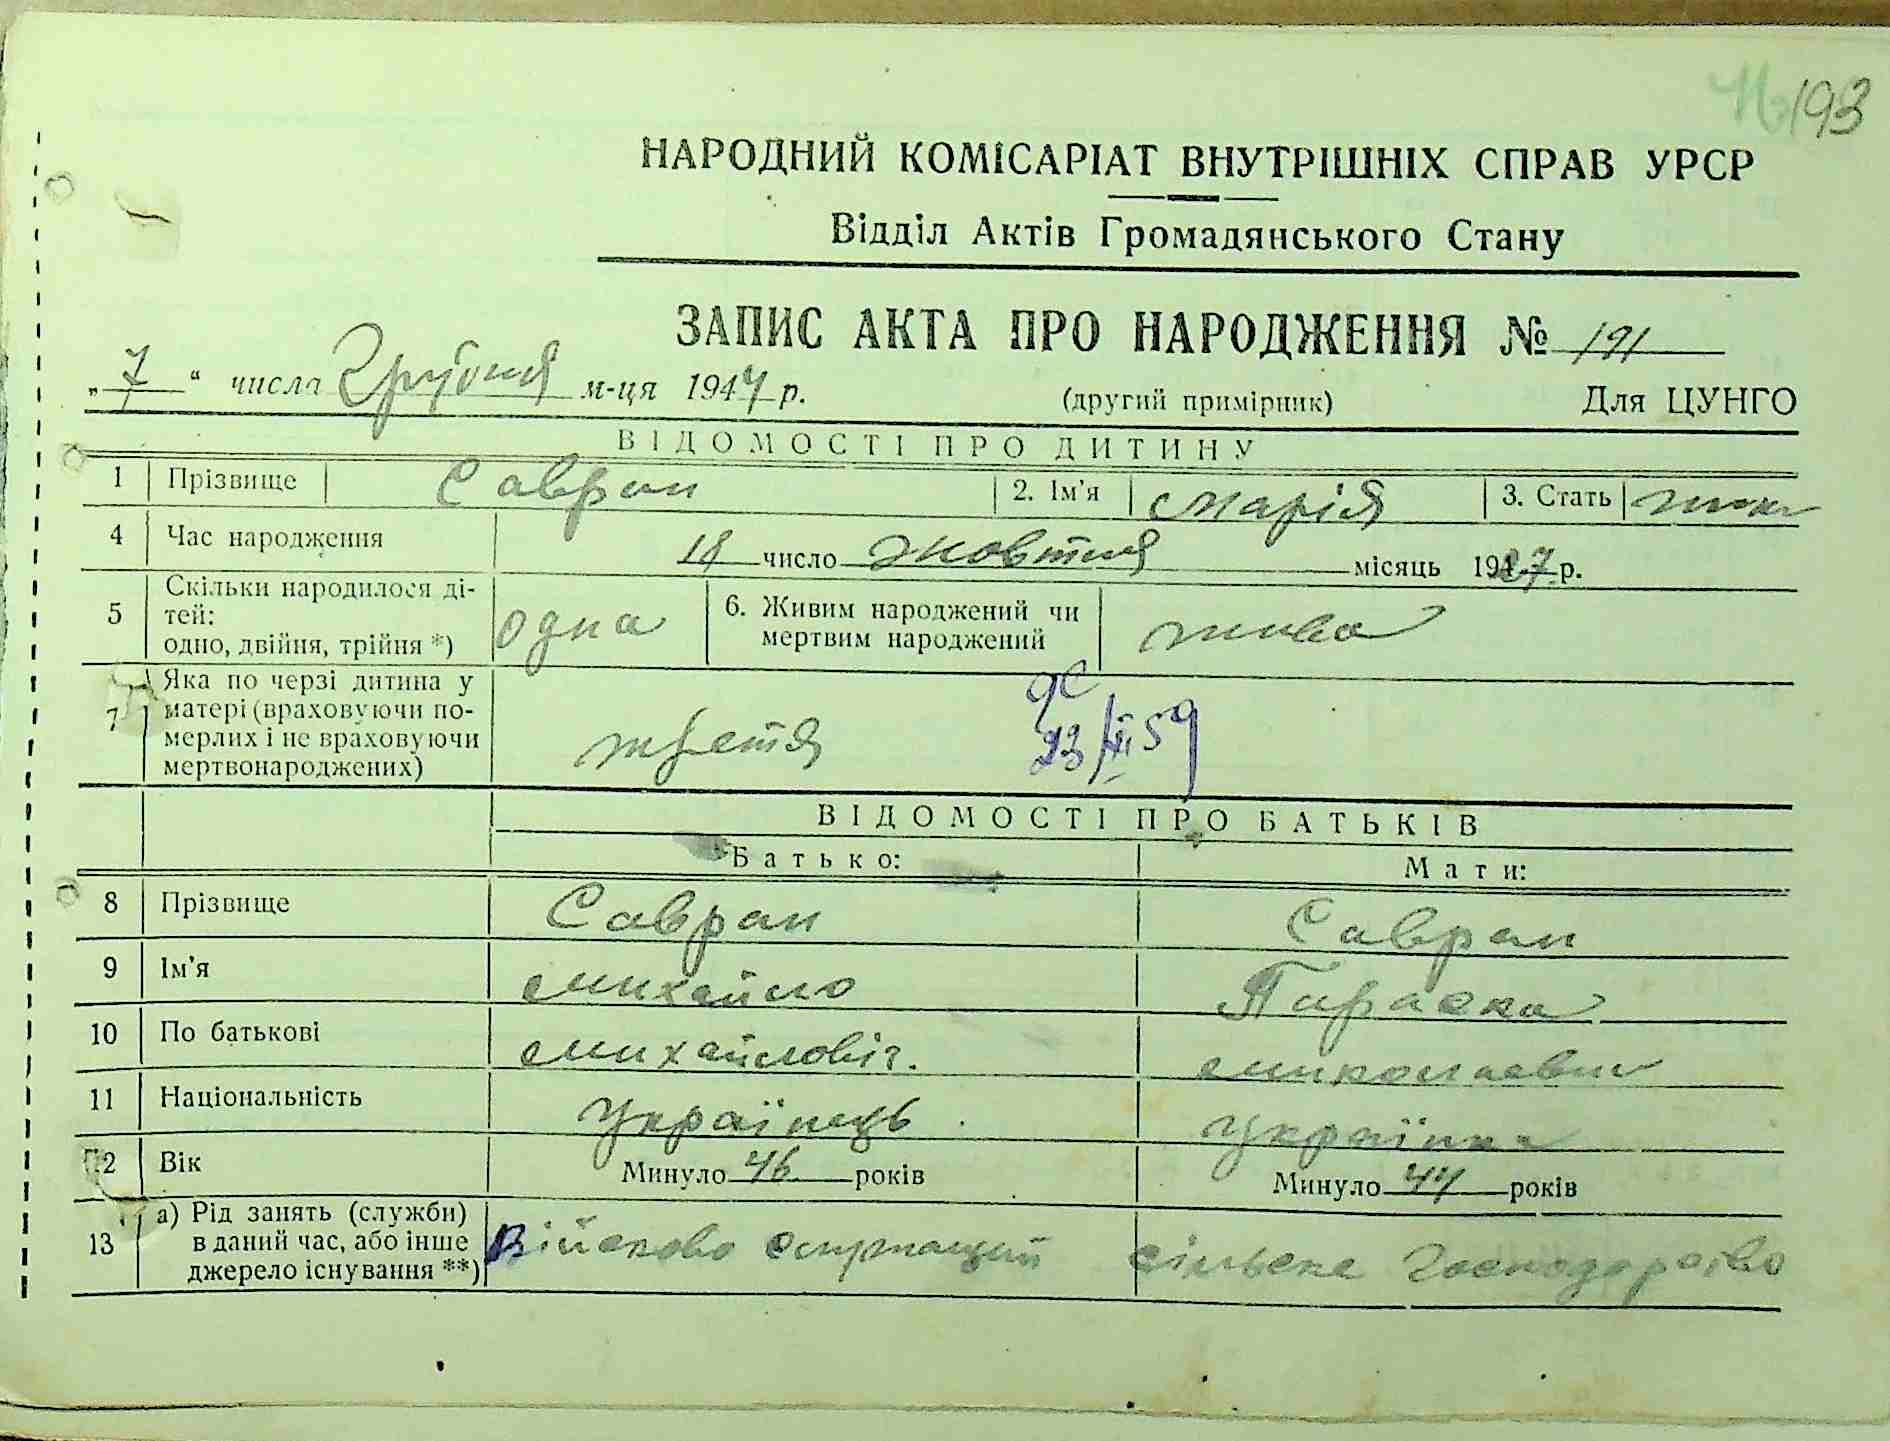 193
НАРОДНИЙ КОМІСАРІАТ ВНУТРІШНІХ СПРАВ УРСР
Відділ Актів Громадянського Стану
ЗАПИС АКТА ПРО НАРОДЖЕННЯ № 191
„ 7 “ числа Грудня м-ця 1944 р. (другий примірник) Для ЦУНГО
ВІДОМОСТІ ПРО ДИТИНУ
1 Прізвище Савран 2. Ім'я Марія 3. Стать жін
4 Час народження 18 число жовтня місяць 1927 р.
5 Скільки народилося ді-
тей:
одно, двійня, трійня *) одна 6. Живим народжений чи
мертвим народжений жива
7 Яка по черзі дитина у
матері (враховуючи по-
мерлих і не враховуючи
мертвонароджених) третя
23/XII 59
ВІДОМОСТІ ПРО БАТЬКІВ
Батько: Мати:
8 Прізвище Савран Савран
9 Ім'я Михайло Параска
10 По батькові Михайлович. Миколаевна
11 Національність Українець Українка
12 Вік Минуло 46 років Минуло 44 років
13 а) Рід занять (служби)
в даний час, або інше
джерело існування **) Військово служащий сільське господарство